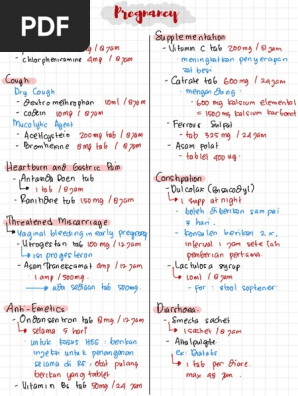 Pregnancy
PDF
- chlorpheniramine 4mg / 8 jam
Cough
Dry Cough
- Dextromethrophan 10ml / 8 jam
- codein 10mg / 8 jam
Mucolytic Agent
- Acetilcystein 200 mg tab / 8 jam
- Bromhexine 8mg tab / 8 jam
Heartburn and Gastric Pain
- Antasida Doen tab
1 tab / 8 jam
- Ranitidine tab 150 mg / 8 jam
Threatened Miscarriage
Vaginal bleeding in early pregnancy
- Utrogestan tab 100 mg / 12 jam
isi progesteron
- Asam Tranexamat amp / 12 jam
1 amp / 500 mg
ada sediaan tab 500mg
Anti-Emetics
- Ondansentron tab 8 mg / 12 jam
selama 5 hari
untuk kasus HEG : berikan
injeksi untuk penanganan
selama di RS. obat pulang
berikan yang tablet
- Vitamin B6 tab 50mg / 24 jam
Supplementation
- Vitamin C tab 200 mg / 8 jam
meningkatkan penyerapan
zat besi
- Calcium tab 600 mg / 24 jam
mengandung :
- 600 mg kalsium elemental
= 1500 mg kalsium karbonat
- Ferrous Sulfat
- tab 325 mg / 24 jam
- Asam folat
- tablet 400 ug
Constipation
- Dulcolax (Bisacodyl)
1 supp at night
- boleh diberikan sampai
3 hari.
- kemudian berikan 2x,
interval 1 jam setelah
pemberian pertama.
- Lactulosa syrup
10ml / 8 jam
- For : stool softener
Diarrhoea
- Smecta sachet
1 sachet / 8 jam
- Attalpulgite
ex: Diatabs
1 tab per diare.
max 48 jam.